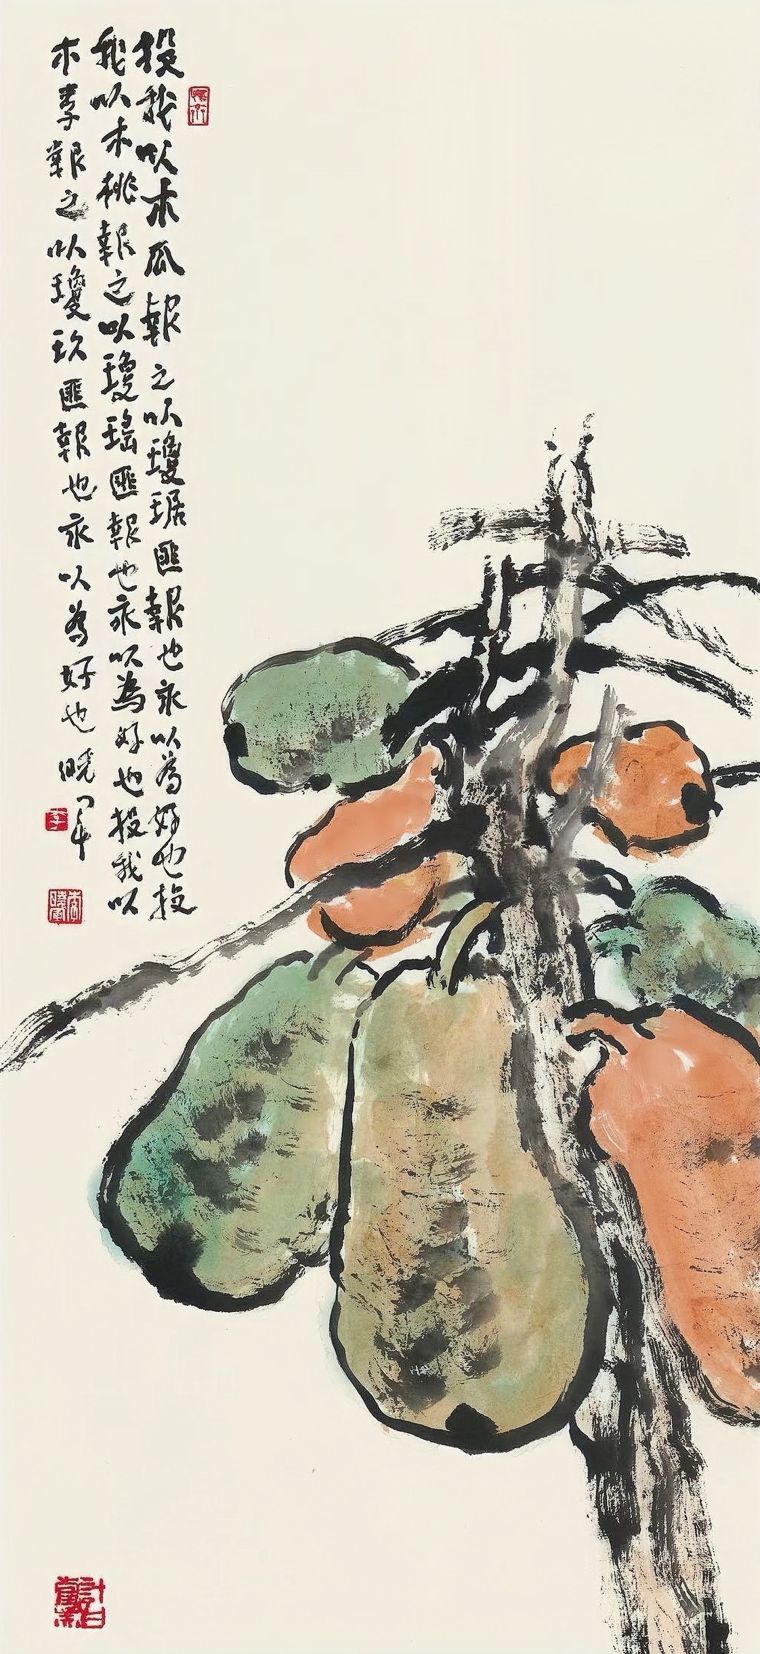 投我以木瓜報之以瓊琚匪報也永以為好也投
我以木桃報之以瓊瑤匪報也永以為好也投我以
木李報之以瓊玖匪報也永以為好也曉軍